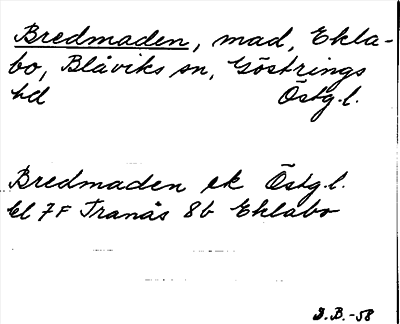 Bredmaden, mad, Ekla-
bo, Blåviks sn, Göstrings
hd Östg.l.
Bredmaden ek Östg.l.
bl 7F Tranås 8b Eklabo
J.B.-58